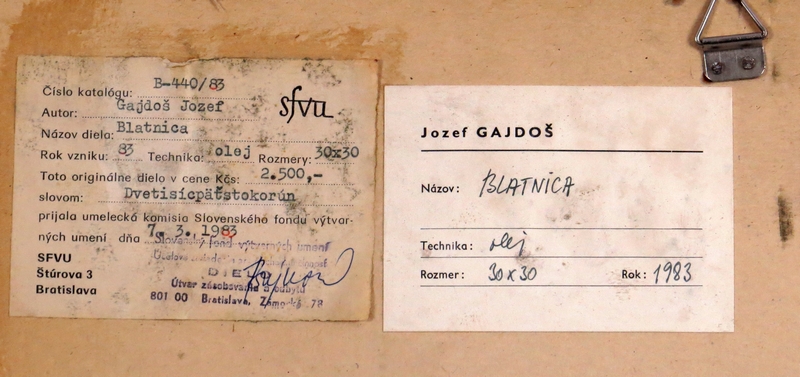 Číslo katalógu: B-440/83
sfvu
Autor: Gajdoš Jozef
Názov diela: Blatnica
Rok vzniku: 83 Technika: olej Rozmery: 30x30
Toto originálne dielo v cene Kčs: 2.500,-
slovom: Dvetisícpäťstokorún
prijala umelecká komisia Slovenského fondu výtvar-
ných umení dňa 7. 3. 1983
Slovenský fond výtvarných umení
DIELO
SFVU
Štúrova 3
Bratislava
Útvar zásobovania a odbytu
801 00 Bratislava, Zámocká 78
Jozef GAJDOŠ
Názov: BLATNICA
Technika: olej
Rozmer: 30x30 Rok: 1983